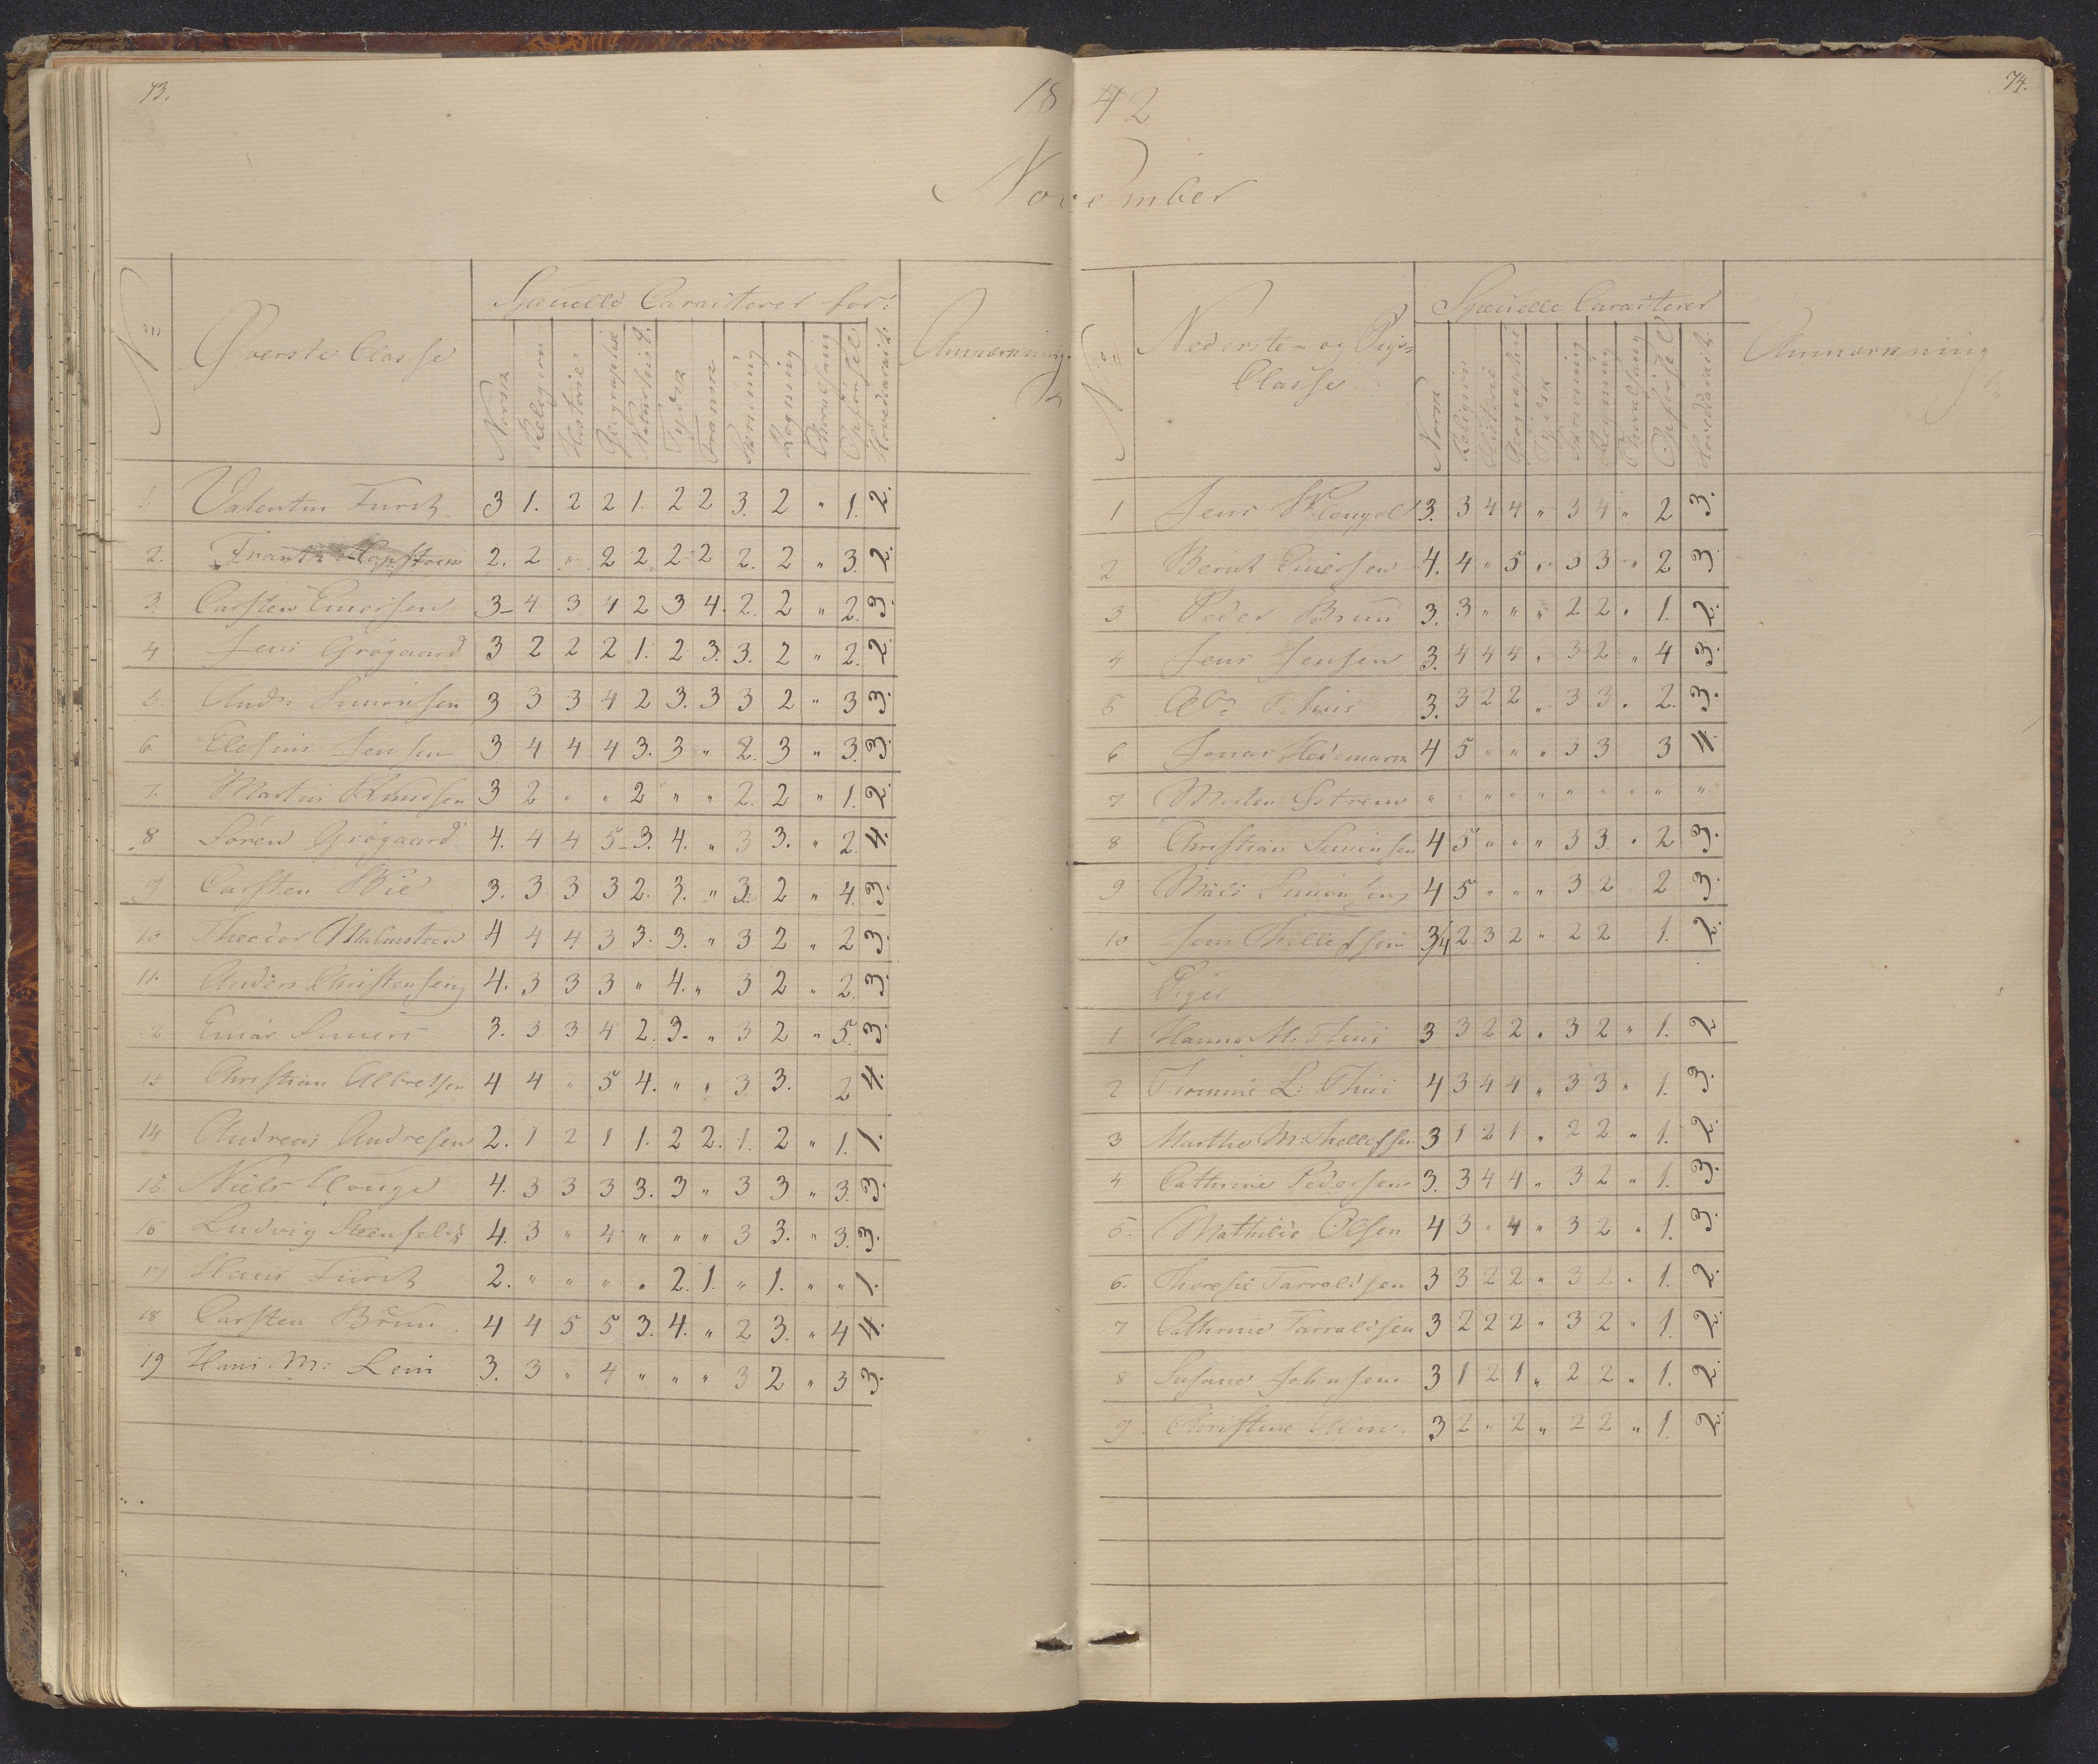 73.
18 42
74.
November
No Øverste Classe
Specielle Caracterer for:
Anmærkning.
Norsk Religion Historie Geographie Naturhist. Tydsk Fransk Skrivning Regning Choralsang Opførsel Hovedcarakt.
1 Valentin Fürst 3 1. 2 2 1. 2 2 3. 2 " 1. 2.
2. Frantz 2. 2 " 2 2 2 2 2. 2 " 3. 2.
3. Carsten Einersen 3- 4 3 4 2 3 4. 2. 2 " 2. 3.
4 Jens Grögaard 3 2 2 2 1. 2 3. 3. 2 " 2. 2.
5. And: Simonsen 3 3 3 4 2 3. 3 3 2 " 3 3.
6 Elefsius Jensen 3 4 4 4 3. 3 " 2. 3 " 3. 3.
7. Martin Knudsen 3 2 " " 2 " " 2. 2 " 1. 2.
8 Sören Grögaard 4. 4 4 5- 3. 4. " 3 3. " 2. 4.
9 Carsten Wie 3. 3 3 3 2. 3. " 3. 2 " 4. 3.
10 Theodor Malmsteen 4 4 4 3 3. 3. " 3 2 " 2 3.
11. Anders Christensen 4. 3 3 3 " 4. " 3 2 " 2. 3.
12 Einar 3. 3 3 4 2. 3. " 3 2 " 5. 3.
13 Christian Albretsen 4 4 " 5 4. " " 3 3. 2 4.
14 Andreas Andresen 2. 1 2 1 1. 2 2. 1. 2 " 1. 1.
15. Niels Houge 4. 3 3 3 3. 3 " 3 3 " 3. 3.
16 Ludvig Steenfeldt 4. 3 " 4 " " " 3 3. " 3. 3.
17 Hans Fürst 2. " " " " 2. 1. " 1. " " 1.
18 Carsten Brun 4 4 5 5 3. 4. " 2 3. " 4 4.
19 Hans M: 3. 3 " 4 " " " 3 2 " 3 3.
No Nederste- og Pige-
Classe
Specielle Caracterer
Anmærkning
Norsk Religion Historie Geographie Tydsk Skrivning Regning Choralsang Opførsel Hovedcarakt.
1 Jens Klengel 3. 3 4 4 " 3 4 " 2 3.
2 Bernt Einersen 4. 4 " 5 " 3 3 " 2 3
3 Peder Brun 3. 3 " " " 2 2 " 1. 2.
4 Jens Jensen 3. 4 4 4 " 3 2 " 4 3.
5 Thuis 3. 3 2 2 " 3 3 " 2. 3.
6. Jonas Hedemark 4 5 " " " 3 3 3 4.
7 Morten " " " " " " " " "
8 Christian Simonsen 4 5 " " " 3 3 " 2 3.
9 Simonsen 4 5 " " " 3 2 2 3.
10 Jens Thellefsen 3/4 2 3 2 " 2 2 1. 2.
Piger
1 Hanna M. Thuis 3 3 2 2 " 3 2 " 1. 2
2 Tomine L: Thuis 4 3 4 4 " 3 3 " 1. 3.
3 Marthe M: Thellefsen 3 1 2 1 " 2 2 " 1. 2.
4 Cathrine Pedersen 3. 3 4 4 " 3 2 " 1. 3.
5. Mathilde Olsen 4 3 " 4 " 3 2 " 1. 3.
6. Theresie Tarraldsen 3 3 2 2 " 3 2 " 1. 2.
7 Cathrine Tarraldsen 3 2 2 2 " 3 2 " 1. 2.
8 Susane Johnsen 3 1 2 1 " 2 2 " 1. 2.
9 Christine 3 2 " 2 " 2 2 " 1. 2.